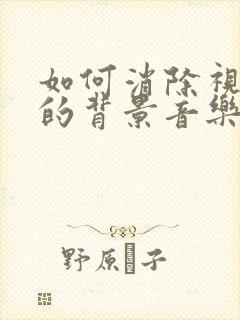 如何消除視
的背景音樂
野原子